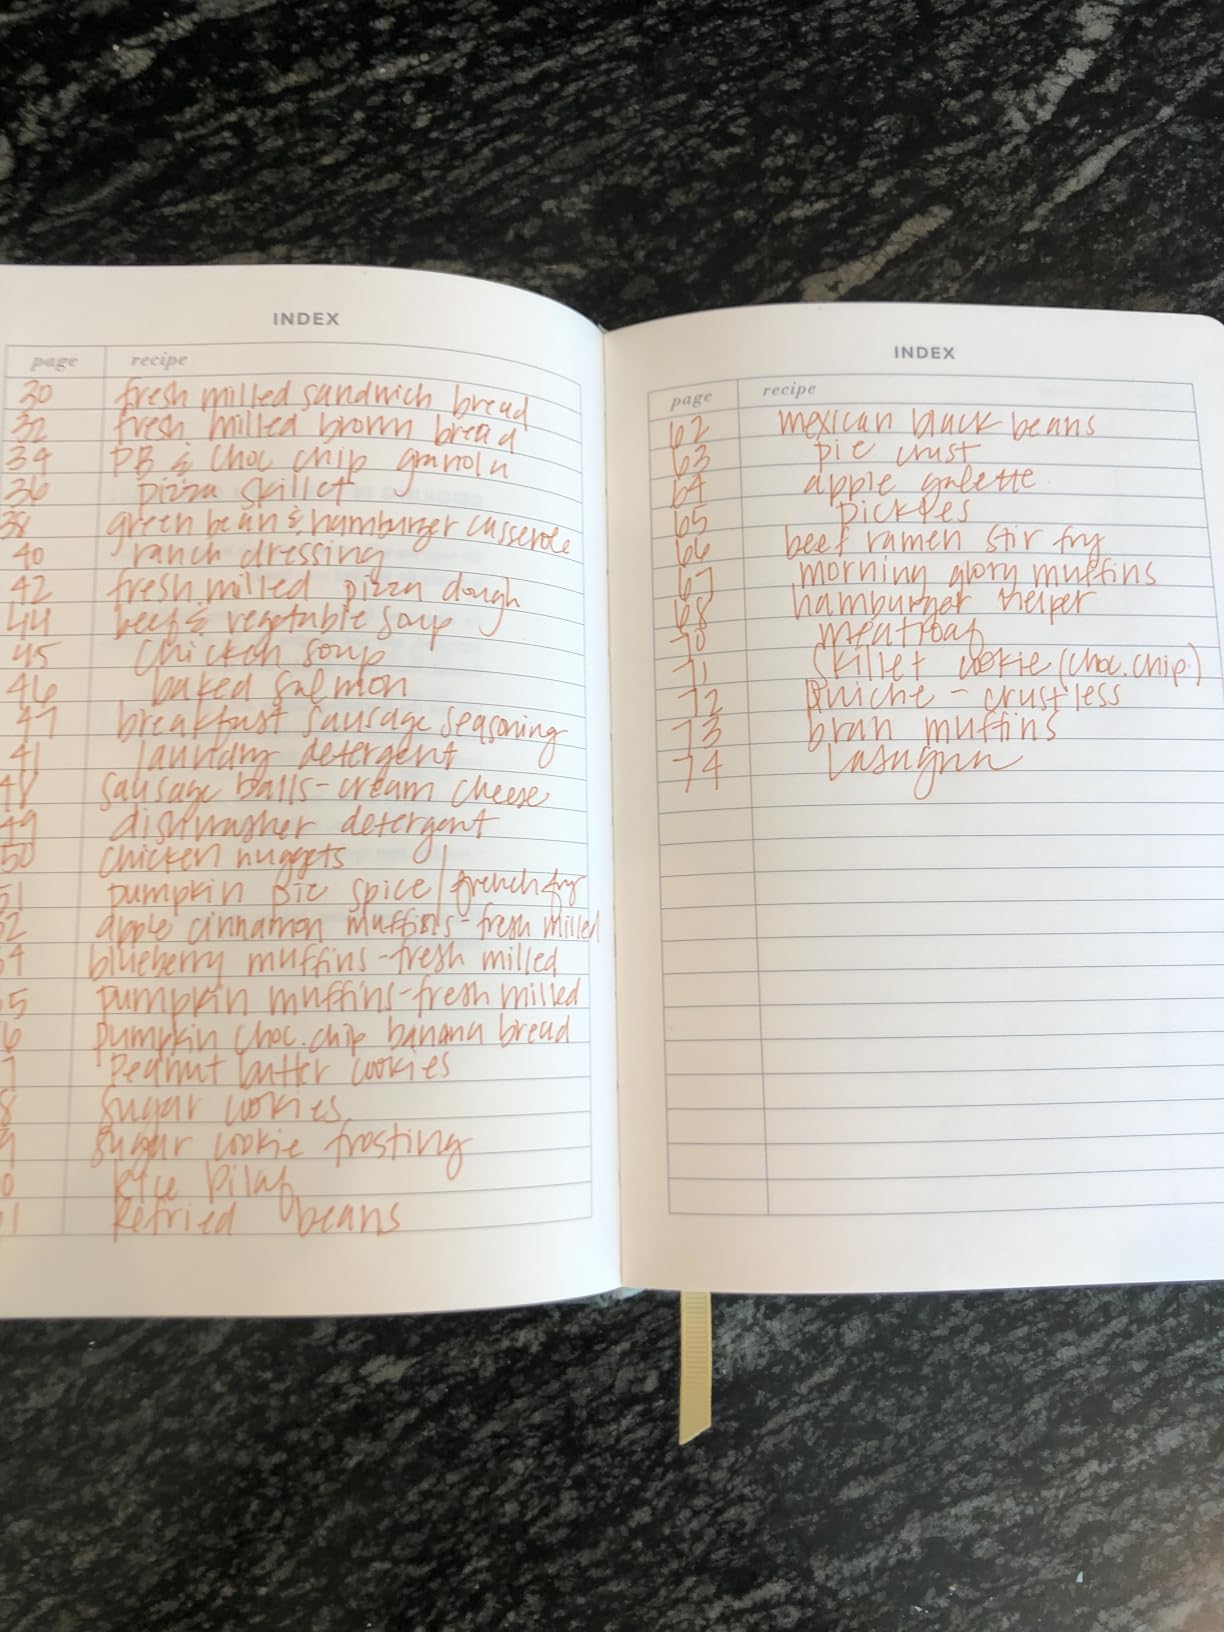 INDEX
page recipe
30 fresh milled sandwich bread
32 fresh milled brown bread
34 PB & Choc chip granola
36 pizza skillet
38 green bean & hamburger casserole
40 ranch dressing
42 fresh milled pizza dough
44 beef & vegetable soup
45 chicken soup
46 baked salmon
47 breakfast sausage seasoning
41 laundry detergent
48 sausage balls - cream cheese
49 dishwasher detergent
50 chicken nuggets
51 pumpkin pie spice / french fry
2 apple cinnamon muffins - fresh milled
4 blueberry muffins - fresh milled
5 pumpkin muffins - fresh milled
6 pumpkin choc. chip banana bread
7 Peanut butter cookies
8 sugar cookies
9 sugar cookie frosting
0 Rice Pilaf
1 Refried beans
INDEX
page recipe
62 mexican black beans
63 pie crust
64 apple galette
65 pickles
66 beef ramen stir fry
67 morning glory muffins
68 hamburger helper
70 meatloaf
71 skillet cookie (choc. chip)
72 Quiche - crustless
73 bran muffins
74 Lasagna